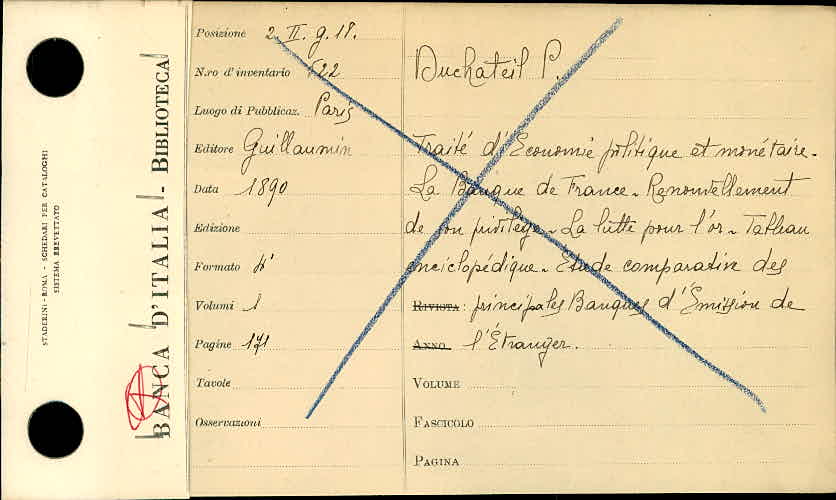 STADERINI - ROMA - SCHEDARI PER CATALOGHI
SISTEMA BREVETTATO
BANCA D'ITALIA - BIBLIOTECA
Posizione 2. II. g. 18.
N.ro d'inventario 522
Luogo di Pubblicaz. Paris
Editore Guillaumin
Data 1890
Edizione
Formato 4°
Volumi 1
Pagine 171
Tavole
Osservazioni
Duchateil P.
Traité d'Économie politique et monétaire.
La Banque de France - Renouvellement
de son privilège - La lutte pour l'or - Tableau
enciclopédique - Étude comparative des
RIVISTA : principales Banques d'Émission de
ANNO l'Étranger.
VOLUME
FASCICOLO
PAGINA